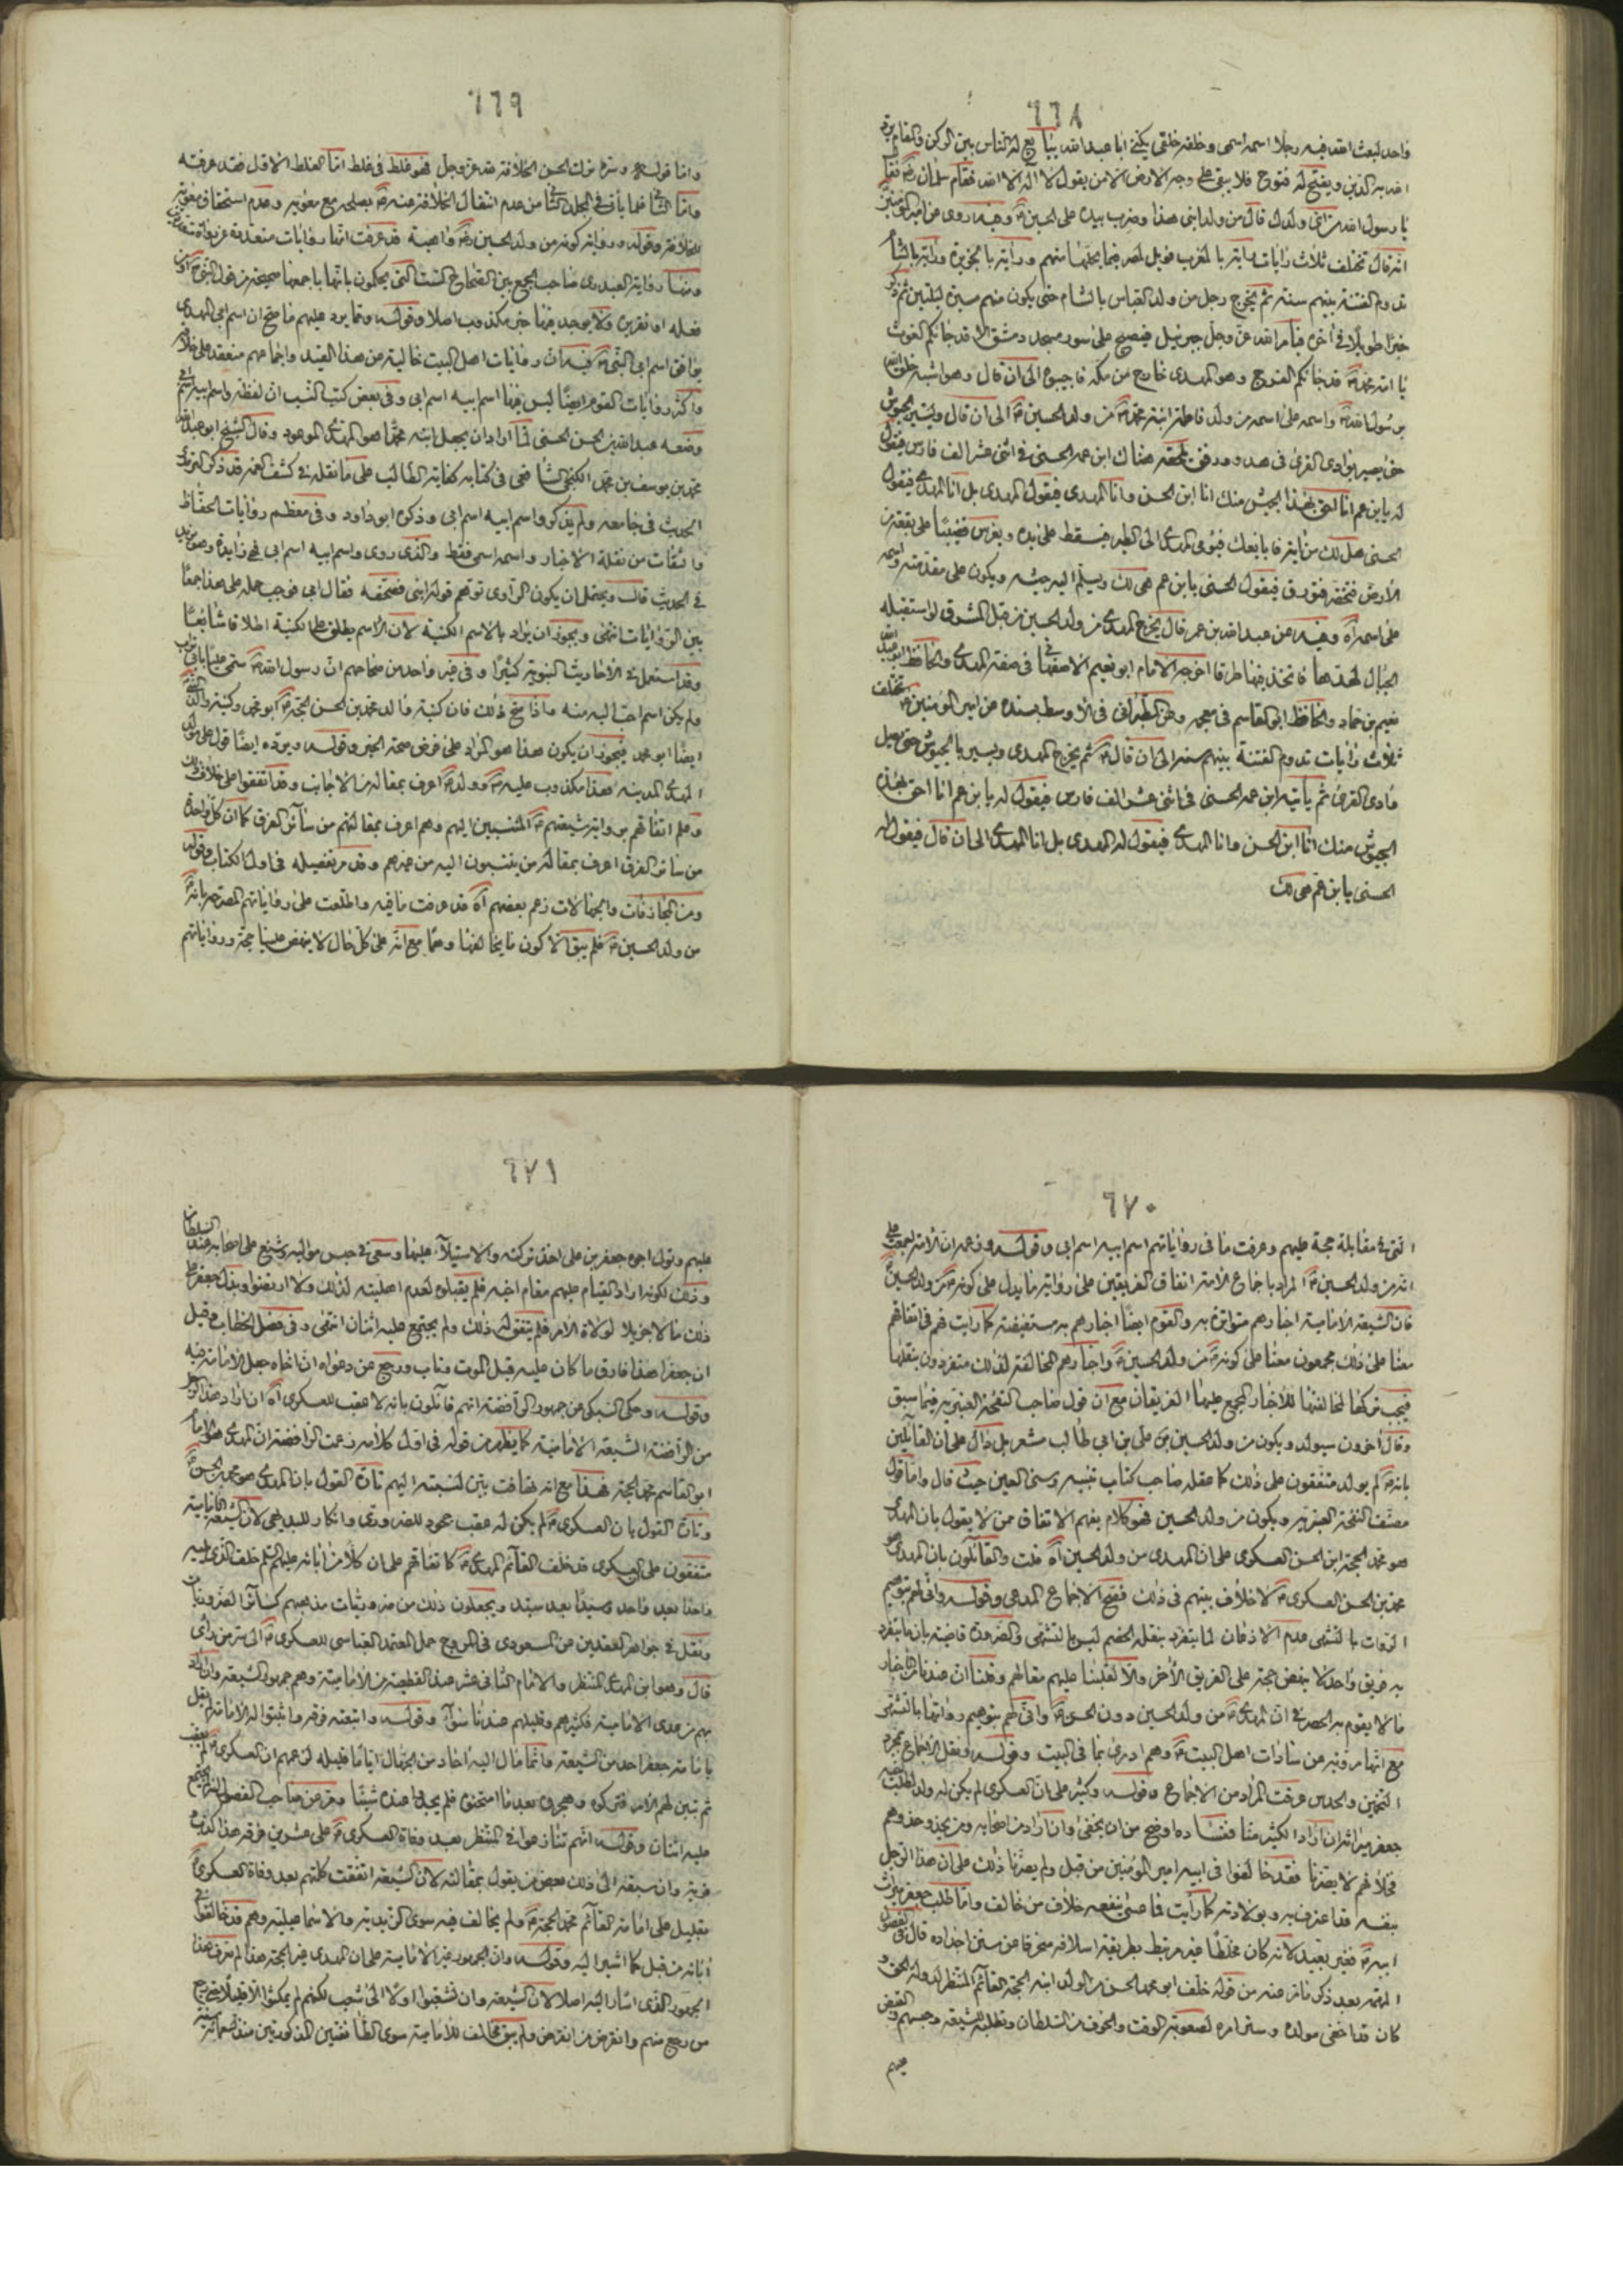 ٦٦٨
واحد لبعث الله فيه رجلا اسمه اسمي وخلقه خلقي يكنى ابا عبد الله يبايع له الناس بين الركن والمقام يرد
الله به الدين ويفتح له فتوح فلا يبقى على وجه الارض الا من يقول لا اله الا الله فقام سلمان فقال
يا رسول الله من اي ولدك قال من ولد ابني هذا وضرب بيده على الحسين وفيه روى عن امير المؤمنين
انه قال تختلف ثلاث رايات راية بالمغرب فويل لمصر فيما يحلها منهم وراية بالجزيرة وراية بالشام
تدوم الفتنة بينهم سنة ثم يخرج رجل من ولد العباس بالشام حتى يكون منهم مسيرة ليلتين ثم ذكر
خبرا طويلا في اخره فيامر الله عز وجل جبرئيل فيصيح على سور مسجد دمشق الا قد جاءكم الغوث
يا امة محمد قد جاءكم الفرج وهو المهدي خارج من مكة فاجيبوه الى ان قال وهو اشبه خلق الله
برسول الله واسمه على اسمه من ولد فاطمة ابنة محمد من ولد الحسين الى ان قال ويسير بالجيوش
حتى يصير بوادي القرى في هدو ورفق يلحقه هناك ابن عمه الحسني في اثني عشر الف فارس فيقول
له يا ابن عم انا احق بهذا الجيش منك انا ابن الحسن وانا المهدي فيقول المهدي بل انا المهدي فيقول
الحسني هل لك من اية فابايعك فيومي المهدي الى الطير فيسقط على يده ويغرس قضيبا على بقعة من
الارض فتخضر فتورق فيقول الحسني يا ابن عم هي لك ويسلم اليه جيشه ويكون على مقدمته واسمه
على اسمه اه وفيه عن عبد الله بن عمر قال يخرج المهدي من ولد الحسين من قبل المشرق لو استقبله
الجبال لهدتها فاتخذ فيها طرقا اخرجه الامام ابو نعيم الاصفهاني في صفة المهدي والحافظ ابو عبد الله
نعيم بن حماد والحافظ ابو القاسم في معجمه وعن الطبراني في الاوسط بسنده عن امير المؤمنين تختلف
ثلاث رايات تدوم الفتنة بينهم سنة الى ان قال ثم يخرج المهدي ويسير بالجيوش حتى يصل
وادي القرى ثم ياتيه ابن عمه الحسني في اثني عشر الف فارس فيقول له يا ابن عم انا احق بهذه
الجيوش منك انا ابن الحسن وانا المهدي فيقول له المهدي بل انا المهدي الى ان قال فيقول له
الحسني يا ابن عم هي لك
٦٦٩
واما قوله وسره ترك الحسن الخلافة لله عز وجل فهو غلط في غلط اما الغلط الاول فقد عرفته
واما الثاني فلما ياتي في المجلد الثاني من عدم انتقال الخلافة عنه بصلحه مع معوية وعدم استحقاق معوية
للخلافة وقوله ورواية كونه من ولد الحسين واهية قد عرفت انها روايات متعددة
ومنها رواية العبدري صاحب الجمع بين الصحاح الست التي يحكمون بانها باجمعها صحيحة من قول النبي او من
فعله او تقريره ولا يوجد فيها خبر مكذوب اصلا وقوله ومما يرد عليهم ما صح ان اسم ابي المهدي
يوافق اسم ابي النبي فيه ان روايات اهل البيت خالية من هذا القيد واجماعهم منعقد على خلافه
واكثر روايات القوم ايضا ليس فيها اسم ابيه اسم ابي وفي بعض كتب النسب ان لفظة واسم ابيه اسم ابي
وضعه عبد الله بن الحسن الحسني لما اراد ان يجعل ابنه محمدا هو المهدي الموعود وقال الشيخ ابو عبد الله
محمد بن يوسف بن محمد الكنجي الشافعي في كتابه كفاية الطالب على ما نقله في كشف الغمة قد ذكر الترمذي
الحديث في جامعه ولم يذكر واسم ابيه اسم ابي وذكره ابو داود وفي معظم روايات الحفاظ
والثقات من نقلة الاخبار واسمه اسمي فقط والذي روى واسم ابيه اسم ابي فهي زايدة وهو يزيد
في الحديث قال ويحتمل ان يكون الراوي توهم قوله ابني فصحفه فقال ابي فوجب حمله على هذا جمعا
بين الروايات انتهى ويجوز ان يراد بالاسم الكنية لان الاسم يطلق على الكنية اطلاقا شايعا
وقد استعمل في الاحاديث النبوية كثيرا وفي غير واحد من صحاحهم ان رسول الله سمى عليا بابي تراب
ولم يكن اسم احب اليه منه فاذا صح ذلك فان كنية والد محمد بن الحسن الحجة ابو محمد وكنية والد النبي
ايضا ابو محمد فيجوز ان يكون هذا هو المراد على فرض صحة الخبر وقوله ويرده ايضا قول علي مولد
المهدي المدينة فهذا مكذوب عليه وولده اعرف بمقاله من الاجانب وقد اتفقوا على خلاف ذلك
وعلم اتفاقهم برواية شيعتهم المنتسبين اليهم وهم اعرف بمقالتهم من سائر الفرق كما ان كل واحدة
من سائر الفرق اعرف بمقالة من ينتسبون اليه من غيرهم وقد مر تفصيله في اول الكتاب وقوله
ومن المجازفات والجهالات زعم بعضهم اه قد عرفت ما فيه واطلعت على رواياتهم المصرحة بانه
من ولد الحسين فلم يبق الا كون ما يخالفها وهما مع انه على كل حال لا ينهض علينا حجة ورواياتهم
٦٧٠
التي في مقابلة حجة عليهم وعرفت ما في رواياتهم اسم ابيه اسم ابي وقوله وزعمه ان الامة اجمعت على
انه من ولد الحسين المراد باجماع الامة اتفاق الفريقين على رواية ما يدل على كونه من ولد الحسين
فان الشيعة الامامية اخبارهم متواترة به والقوم ايضا اخبارهم به مستفيضة كما رايت فهم في اتفاقهم
معنا على ذلك مجمعون معنا على كونه من ولد الحسين واخبارهم المخالفة لذلك متفردون بنقلها
فيجب تركها لمخالفتها للاخبار المجمع عليها الفريقان مع ان قول صاحب النفحة العنبرية فيما سبق
وقال اخرون سيولد ويكون من ولد الحسين بن علي بن ابي طالب مشعر بل دال على ان القائلين
بانه لم يولد متفقون على ذلك كما عقله صاحب كتاب تنبيه وسنى العين حيث قال واما قول
مصنف النفحة العنبرية ويكون من ولد الحسين فهو كلام يفهم الاتفاق ممن لا يقول بان المهدي
هو محمد الحجة ابن الحسن العسكري على ان المهدي من ولد الحسين اه قلت والقائلون بان المهدي هو
محمد بن الحسن العسكري لا خلاف بينهم في ذلك فصح الاجماع المدعى وقوله وانى لهم بتوهيم
الرواة بالتشهي عدم الاذعان لما يتفرد بنقله الخصم ليس بالتشهي والضرورة قاضية بان ما يتفرد
به فريق واحد لا ينهض حجة على الفريق الاخر والا لقلبنا عليهم مقالهم وقلنا ان عندنا من الاخبار
ما لا يقوم به الحصر في ان المهدي من ولد الحسين دون الحسن وانى لهم بتوهيم رواتها بالتشهي
مع انها مروية عن سادات اهل البيت وهم ادرى بما في البيت وقوله ونقل الاجماع بمجرد
التخمين والحدس عرفت المراد من الاجماع وقوله وكثير على ان العسكري لم يكن له ولد لطلب اخيه
جعفر ميراثه ان اراد الكثير منا ففساده اوضح من ان يخفى وان اراد من اصحابه ومن يحذو حذوهم
فخلافهم لا يضرنا فقد خالفوا في ابيه امير المؤمنين من قبل ولم يضرنا ذلك على ان هذا الرجل
بنفسه قد اعترف به وبولادته كما رايت فما عسى ينفعه خلاف من خالف واما طلب جعفر ميراث
ابيه فغير بعيد لانه كان مخلطا غير مرتبط بطريقة اسلافه منحرفا عن سنن اجداده قال في الفصول
المهمة بعد ذكر ما مر عنه من قوله خلف ابو محمد الحسن من الولد ابنه الحجة القائم المنتظر لدولة الحق و
كان قد اخفى مولده وستر امره لصعوبة الوقت والخوف من السلطان وتطلبه للشيعة وحبسهم والقبض
عليهم
٦٧١
عليهم وتولى اخوه جعفر بن علي اخذ تركته والاستيلاء عليها وسعى في حبس مواليه وشنع على اصحابه عند السلطان
وذلك لكونه اراد القيام عليهم مقام اخيه فلم يقبلوه لعدم اهليته لذلك ولا ارتضوا وبذل جعفر على
ذلك مالا جزيلا لولاة الامر فلم يتفق له ذلك ولم يجتمع عليه اثنان انتهى وفي فصل الخطاب وقيل
ان جعفرا هذا فارق ما كان عليه قبل الموت وتاب ورجع عن دعواه ان اخاه جعل الامامة فيه
وقوله وحكى السبكي عن جمهور الرافضة انهم قائلون بانه لا عقب للعسكري اه ان اراد هذا الرجل
من الرافضة الشيعة الامامية كما يظهر من قوله في اول كلامه زعمت الرافضة ان المهدي هو الامام
ابو القاسم محمد الحجة فهذا مع انه تهافت بين لنسبته اليهم تارة القول بان المهدي هو محمد بن الحسن
وتارة القول بان العسكري لم يكن له عقب جحود للضروري وانكار للبديهي لان الشيعة الامامية
متفقون على ان العسكري قد خلف القائم المهدي كاتفاقهم على ان كلا من ابائه عليهم السلم خلف الذي يليه
واحدا بعد واحد وسيدا بعد سيد ويجعلون ذلك من ضروريات مذهبهم كسائر الضروريات
ونقل في جواهر العقدين عن المسعودي في المروج حمل المعتمد العباسي للعسكري الى سر من راى
قال وهو ابن المهدي المنتظر والامام الثاني عشر عند القطعية من الامامية وهم جمهور الشيعة وان اراد
بهم من عدى الامامية فكثيرهم وقليلهم عندنا سواء وقوله واتبعته فرقة واثبتوا له الامامة لم يقل
بامامة جعفر احد من الشيعة وانما مال اليه احاد من الجهال اياما قليلة لزعمهم ان العسكري لم يعقب
ثم تبين لهم الامر فتركوه وهجروه بعدما امتحنوه فلم يجدوا عنده شيئا ومر عن صاحب الفصول انه لم يجتمع
عليه اثنان وقوله انهم تنازعوا في المنتظر بعد وفاة العسكري على عشرين فرقة هذا كذب و
فرية وان سبقه الى ذلك بعض من يقول بمقالته لان الشيعة اتفقت كلمتهم بعد وفاة العسكري
بقليل على امامة القائم محمد الحجة ولم يخالف فيه سوى الزيدية والاسماعيلية وهم قد خالفوا في
ابائه من قبل كما اشير اليه وقوله وان الجمهور غير الامامية على ان المهدي غير الحجة هذا لم نعرف هذا
الجمهور الذي اشار اليه اصلا لان الشيعة وان تشعبوا اولا الى شعب لكنهم لم يمكثوا الا قليلا حتى رجع
من رجع منهم وانقرض من انقرض ولم يبق مخالف للامامية سوى الطائفتين المذكورتين منذ